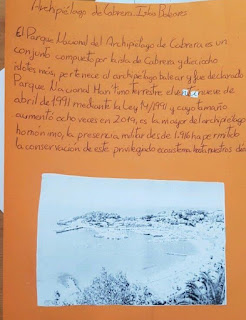 Archipiélago de Cabrera. Islas Baleares
El Parque Nacional del Archipiélago de Cabrera es un
conjunto compuesto por la isla de Cabrera y dieciocho
islotes más, pertenece al archipiélago balear y fue declarado
Parque Nacional Marítimo terrestre el nueve de
abril de 1991 mediante la Ley 14/1991 y cuyo tamaño
aumentó ocho veces en 2019, es la mayor del archipiélago
homónimo, la presencia militar desde 1.916 ha permitido
la conservación de este privilegiado ecosistema hasta nuestros días